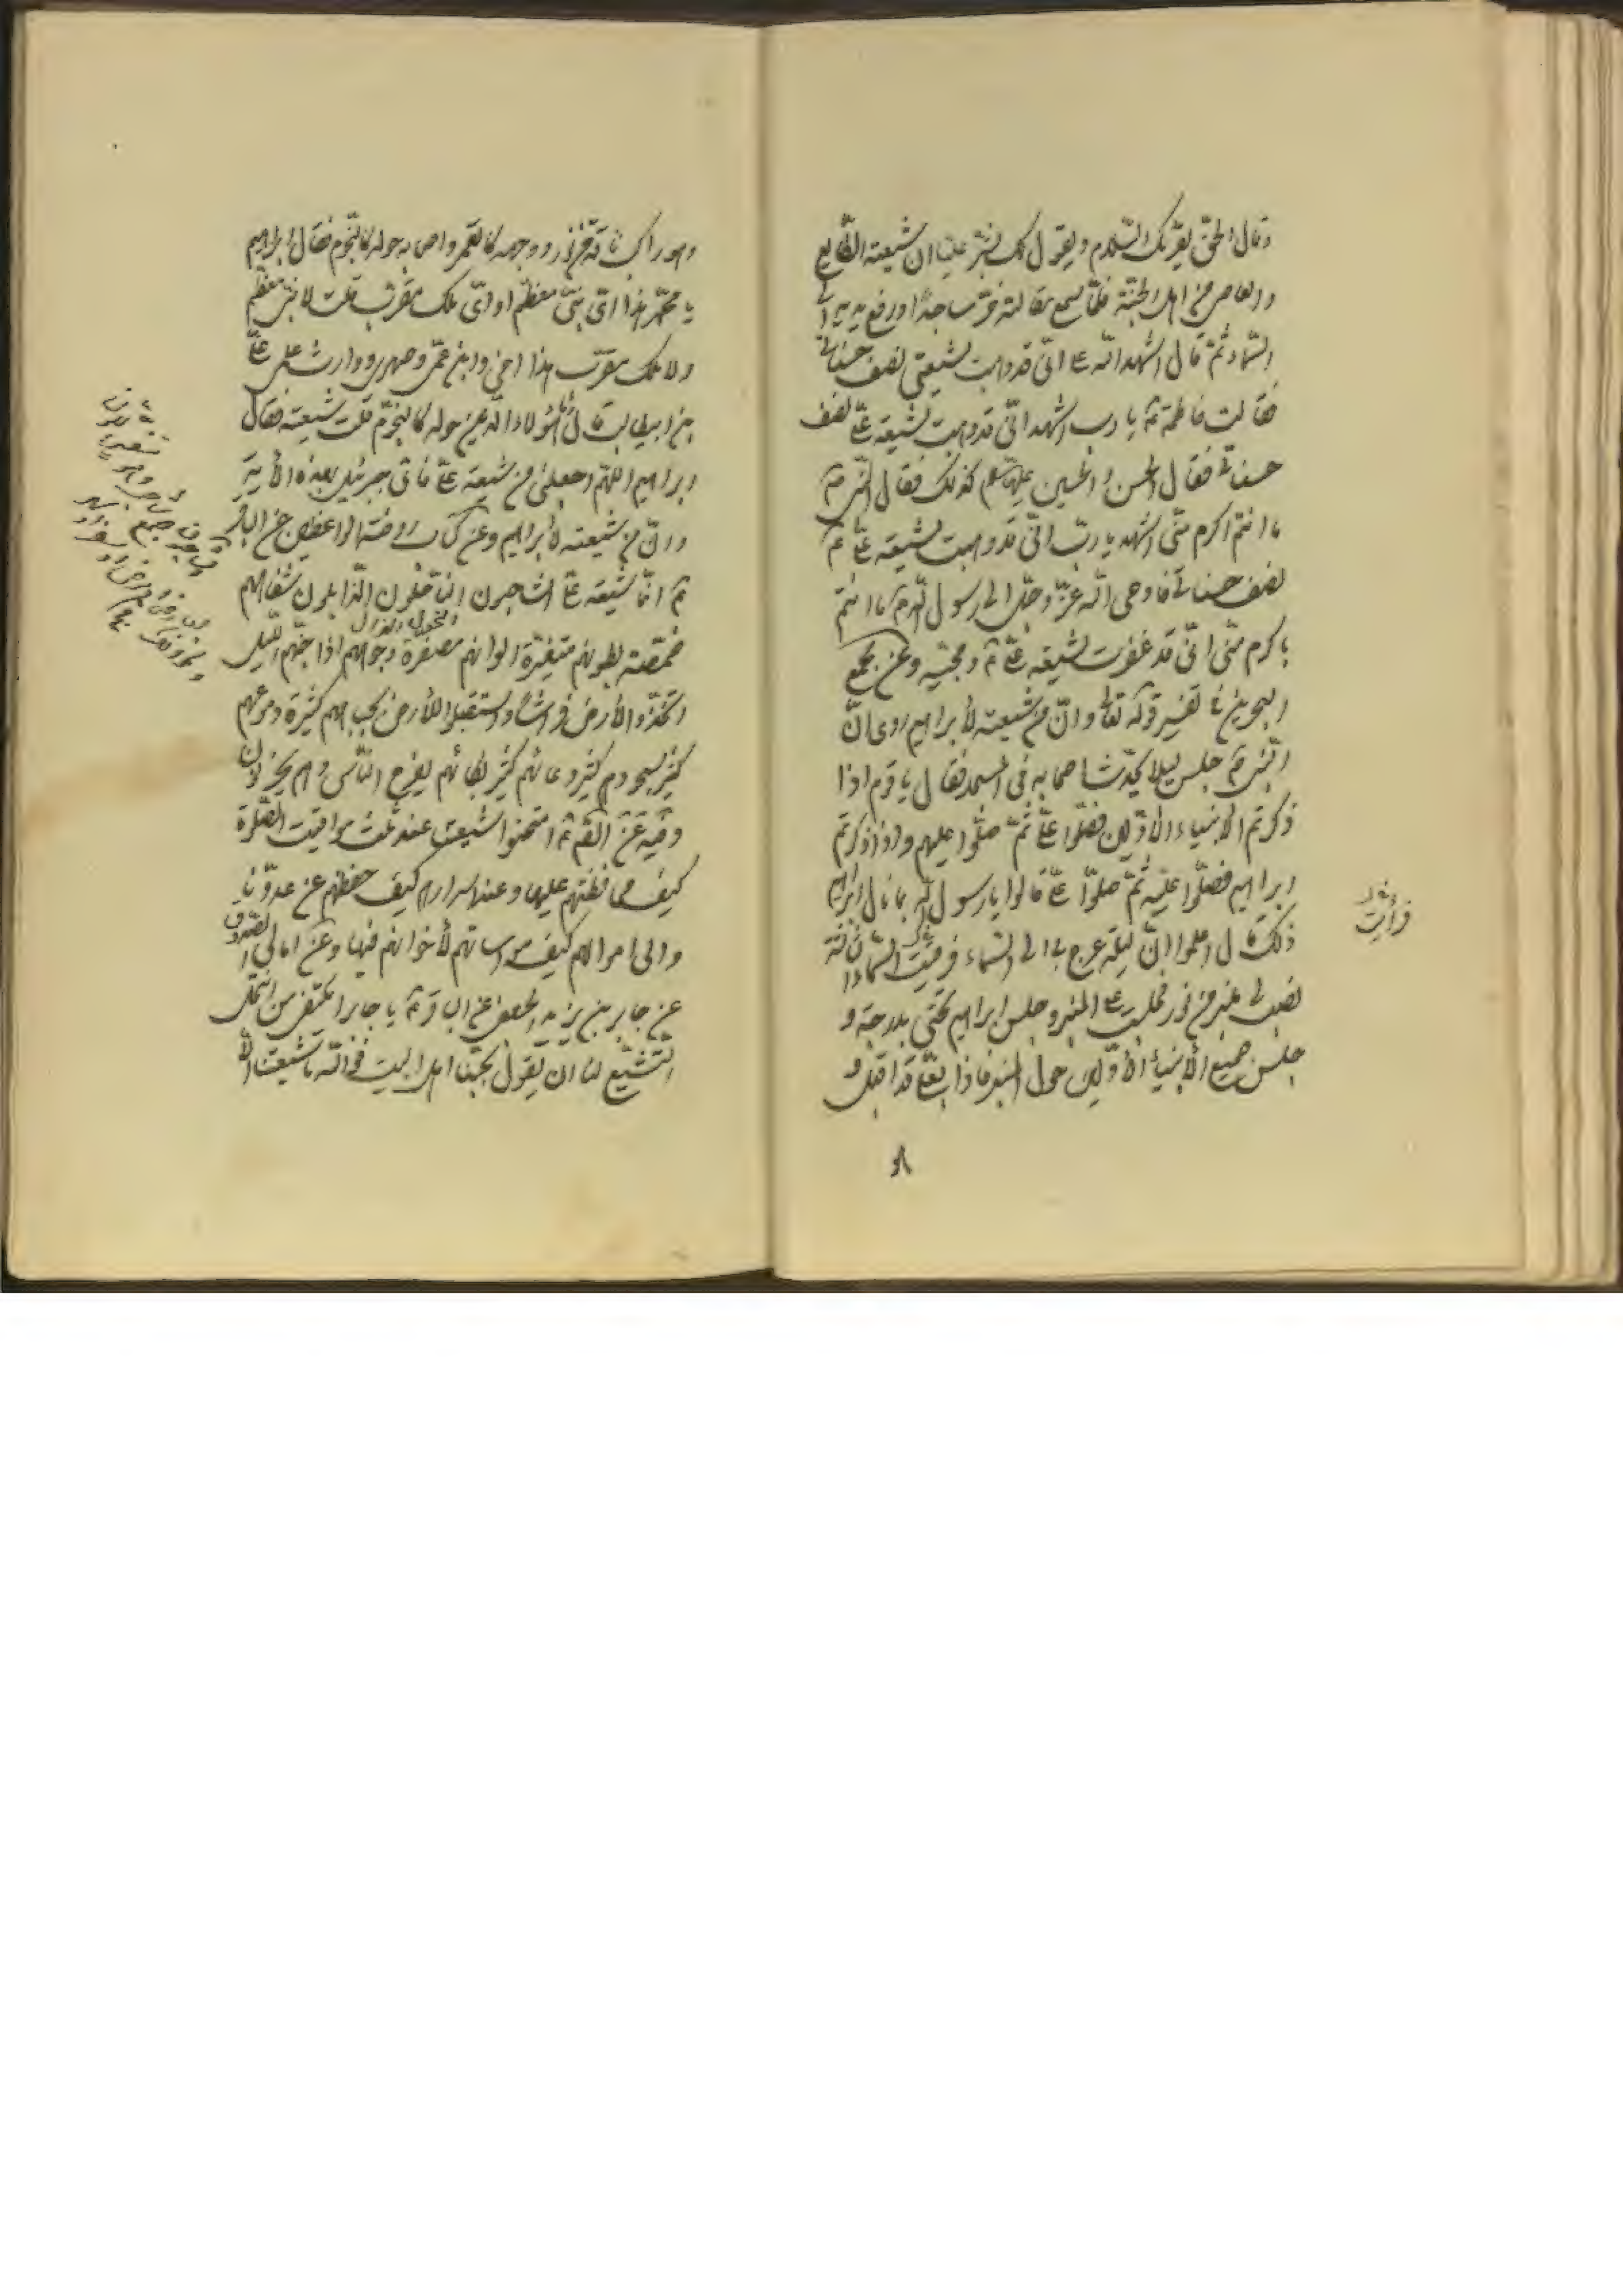 وقال الحق يقرئك السلام ويقول لك بشر عليا ان شيعته الطايع
والعاصي من اهل الجنة فلما سمع مقالته خر ساجدا ورفع يديه الى
السماء ثم قال اشهد الله على انى قد وهبت لشيعتى نصف حسناتى
فقالت فاطمة ع يا رب اشهد انى قد وهبت لشيعة على نصف
حسناتى فقال الحسن والحسين عليهما كذلك فقال النبى ص
ما انتم اكرم منى اشهد يا رب انى قد وهبت لشيعة على ع
نصف حسناتى فاوحى الله عز وجل الى رسول الله ص ما انتم
باكرم منى انى قد غفرت لشيعة على ع ومحبيه وعن مجمع
البحرين فى تفسير قوله تعالى وان من شيعته لأبراهيم روى ان
النبى ص جلس ليلا يحدث اصحابه فى المسجد فقال يا قوم اذا
ذكرتم الانبياء الاولين فصلوا على ثم صلوا عليهم واذا ذكرتم
ابراهيم فصلوا عليه ثم صلوا على قالوا يا رسول الله بما نال ابراهيم
ذلك قال اعلموا ان ليلة عرج بى الى السماء فرقيت السماء الثالثة
نصب لى منبر من نور فجلست على المنبر وجلس ابراهيم تحتى بدرجة و
جلس جميع الأنبياء الأولين حول المنبر فاذا بعلى قد اقبل و
فرأيت
وهو راكب ناقة من نور ووجهه كالقمر واصحابه حوله كالنجوم فقال ابراهيم
يا محمد هذا اى نبى معظم او اى ملك مقرب قلت لا نبى معظم
ولا ملك مقرب هذا اخى وابن عمى وصهرى ووارث علمى على
بن ابيطالب قال ما هؤلاء الذين حوله كالنجوم قلت شيعته فقال
ابراهيم اللهم اجعلنى من شيعة على فاتى جبرئيل بهذه الأية
وان من شيعته لأبراهيم وعن كتاب روضة الواعظين عن الباقر
ع انما شيعة على الشاحبون الناحلون الذابلون شفاههم
خمصة بطونهم متغيرة الوانهم مصفرة وجوههم اذا جنهم الليل
اتخذوا الأرض فراشا واستقبلوا الأرض بجباههم كثيرة دموعهم
كثير سجودهم كثير دعائهم كثير بكائهم يفرح الناس وهم يحزنون
وفيه عن الصم ع امتحنوا شيعتنا عند ثلث مواقيت الصلوة
كيف محافظتهم عليها وعند اسرارهم كيف حفظهم عن عدونا
والى اموالهم كيف مواساتهم لأخوانهم فيها وعن امالى الصدوق
عن جابر بن يزيد الجعفى عن الباقر ع يا جابر ايكتفى من انتحل
التشيع لنا ان يقول بحبنا اهل البيت فوالله ما شيعتنا الا